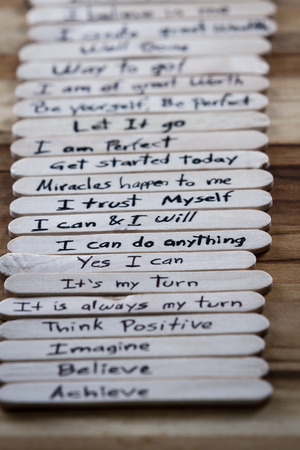 I believe in me
I create great wealth
Well Done
Way to go!
I am of great Worth
Be yourself, Be perfect
Let It go
I am Perfect
Get started today
Miracles happen to me
I trust Myself
I can & I will
I can do anything
Yes I can
It's my Turn
It is always my turn
Think Positive
Imagine
Believe
Achieve